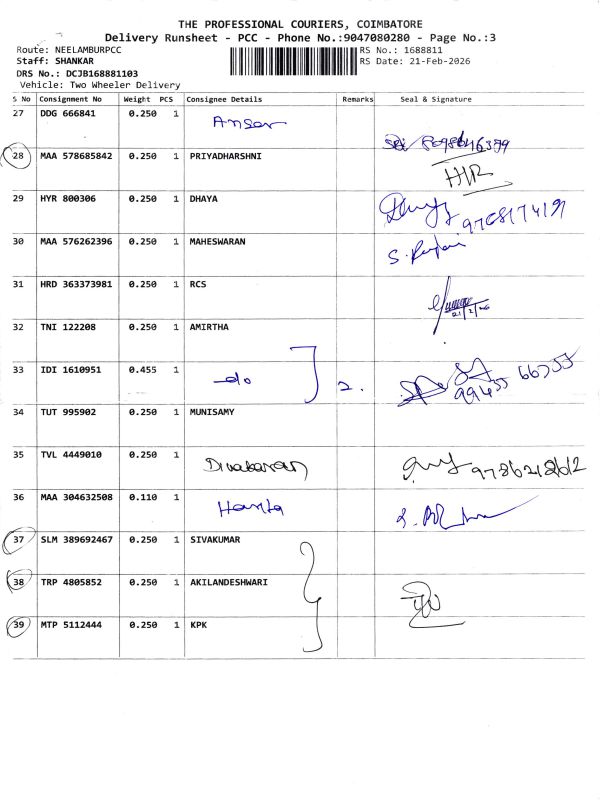 THE PROFESSIONAL COURIERS, COIMBATORE
Delivery Runsheet - PCC - Phone No.:9047080280 - Page No.:3
Route: NEELAMBURPCC
RS No.: 1688811
Staff: SHANKAR
RS Date: 21-Feb-2026
DRS No.: DCJB168881103
Vehicle: Two Wheeler Delivery
S No Consignment No Weight PCS Consignee Details Remarks Seal & Signature
27 DDG 666841 0.250 1 Ansar
28 MAA 578685842 0.250 1 PRIYADHARSHNI HR
29 HYR 800306 0.250 1 DHAYA
30 MAA 576262396 0.250 1 MAHESWARAN
31 HRD 363373981 0.250 1 RCS 21/2/26
32 TNI 122208 0.250 1 AMIRTHA
33 IDI 1610951 0.455 1 do 2. 99455 66755
34 TUT 995902 0.250 1 MUNISAMY
35 TVL 4449010 0.250 1 Divakaran 9786218612
36 MAA 304632508 0.110 1 Harita
37 SLM 389692467 0.250 1 SIVAKUMAR
38 TRP 4805852 0.250 1 AKILANDESHWARI
39 MTP 5112444 0.250 1 KPK